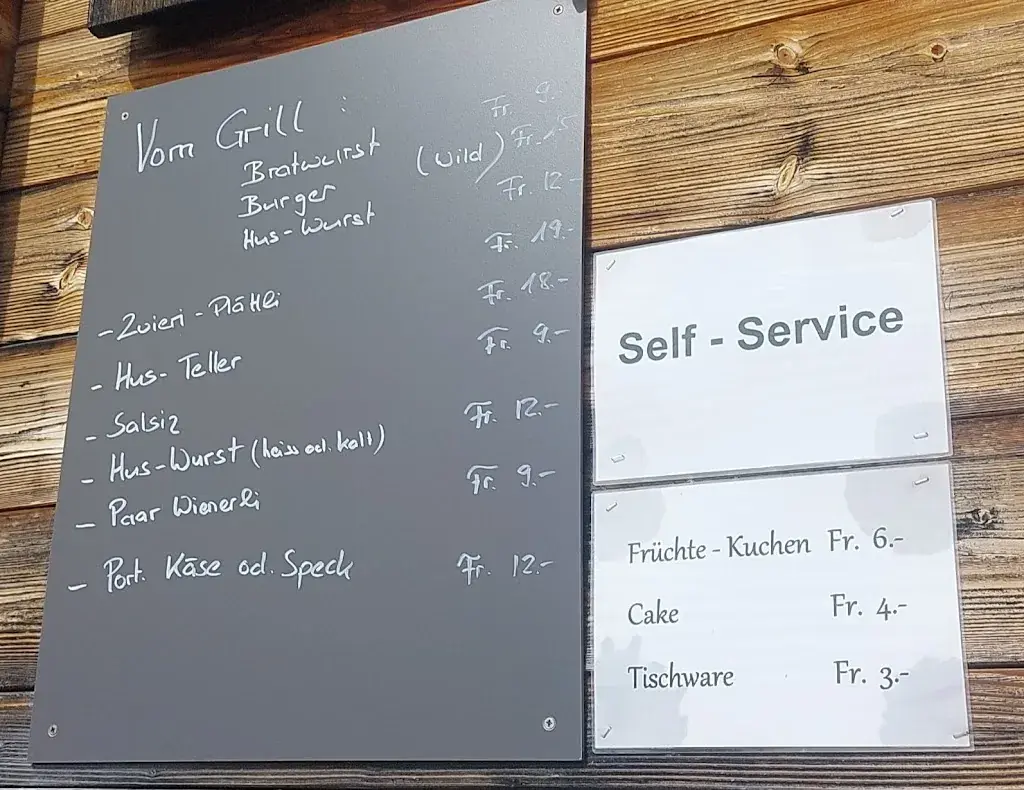 Vom Grill :
Bratwurst Fr. 9.-
Burger (Wild) Fr. 15
Hus-Wurst Fr. 12-
- Zvieri-Plättli Fr. 19.-
- Hus-Teller Fr. 18.-
- Salsiz Fr. 9.-
- Hus-Wurst (heiss od. kalt) Fr. 12.-
- Paar Wienerli Fr. 9.-
- Port. Käse od. Speck Fr. 12.-
Self - Service
Früchte - Kuchen Fr. 6.-
Cake Fr. 4.-
Tischware Fr. 3.-